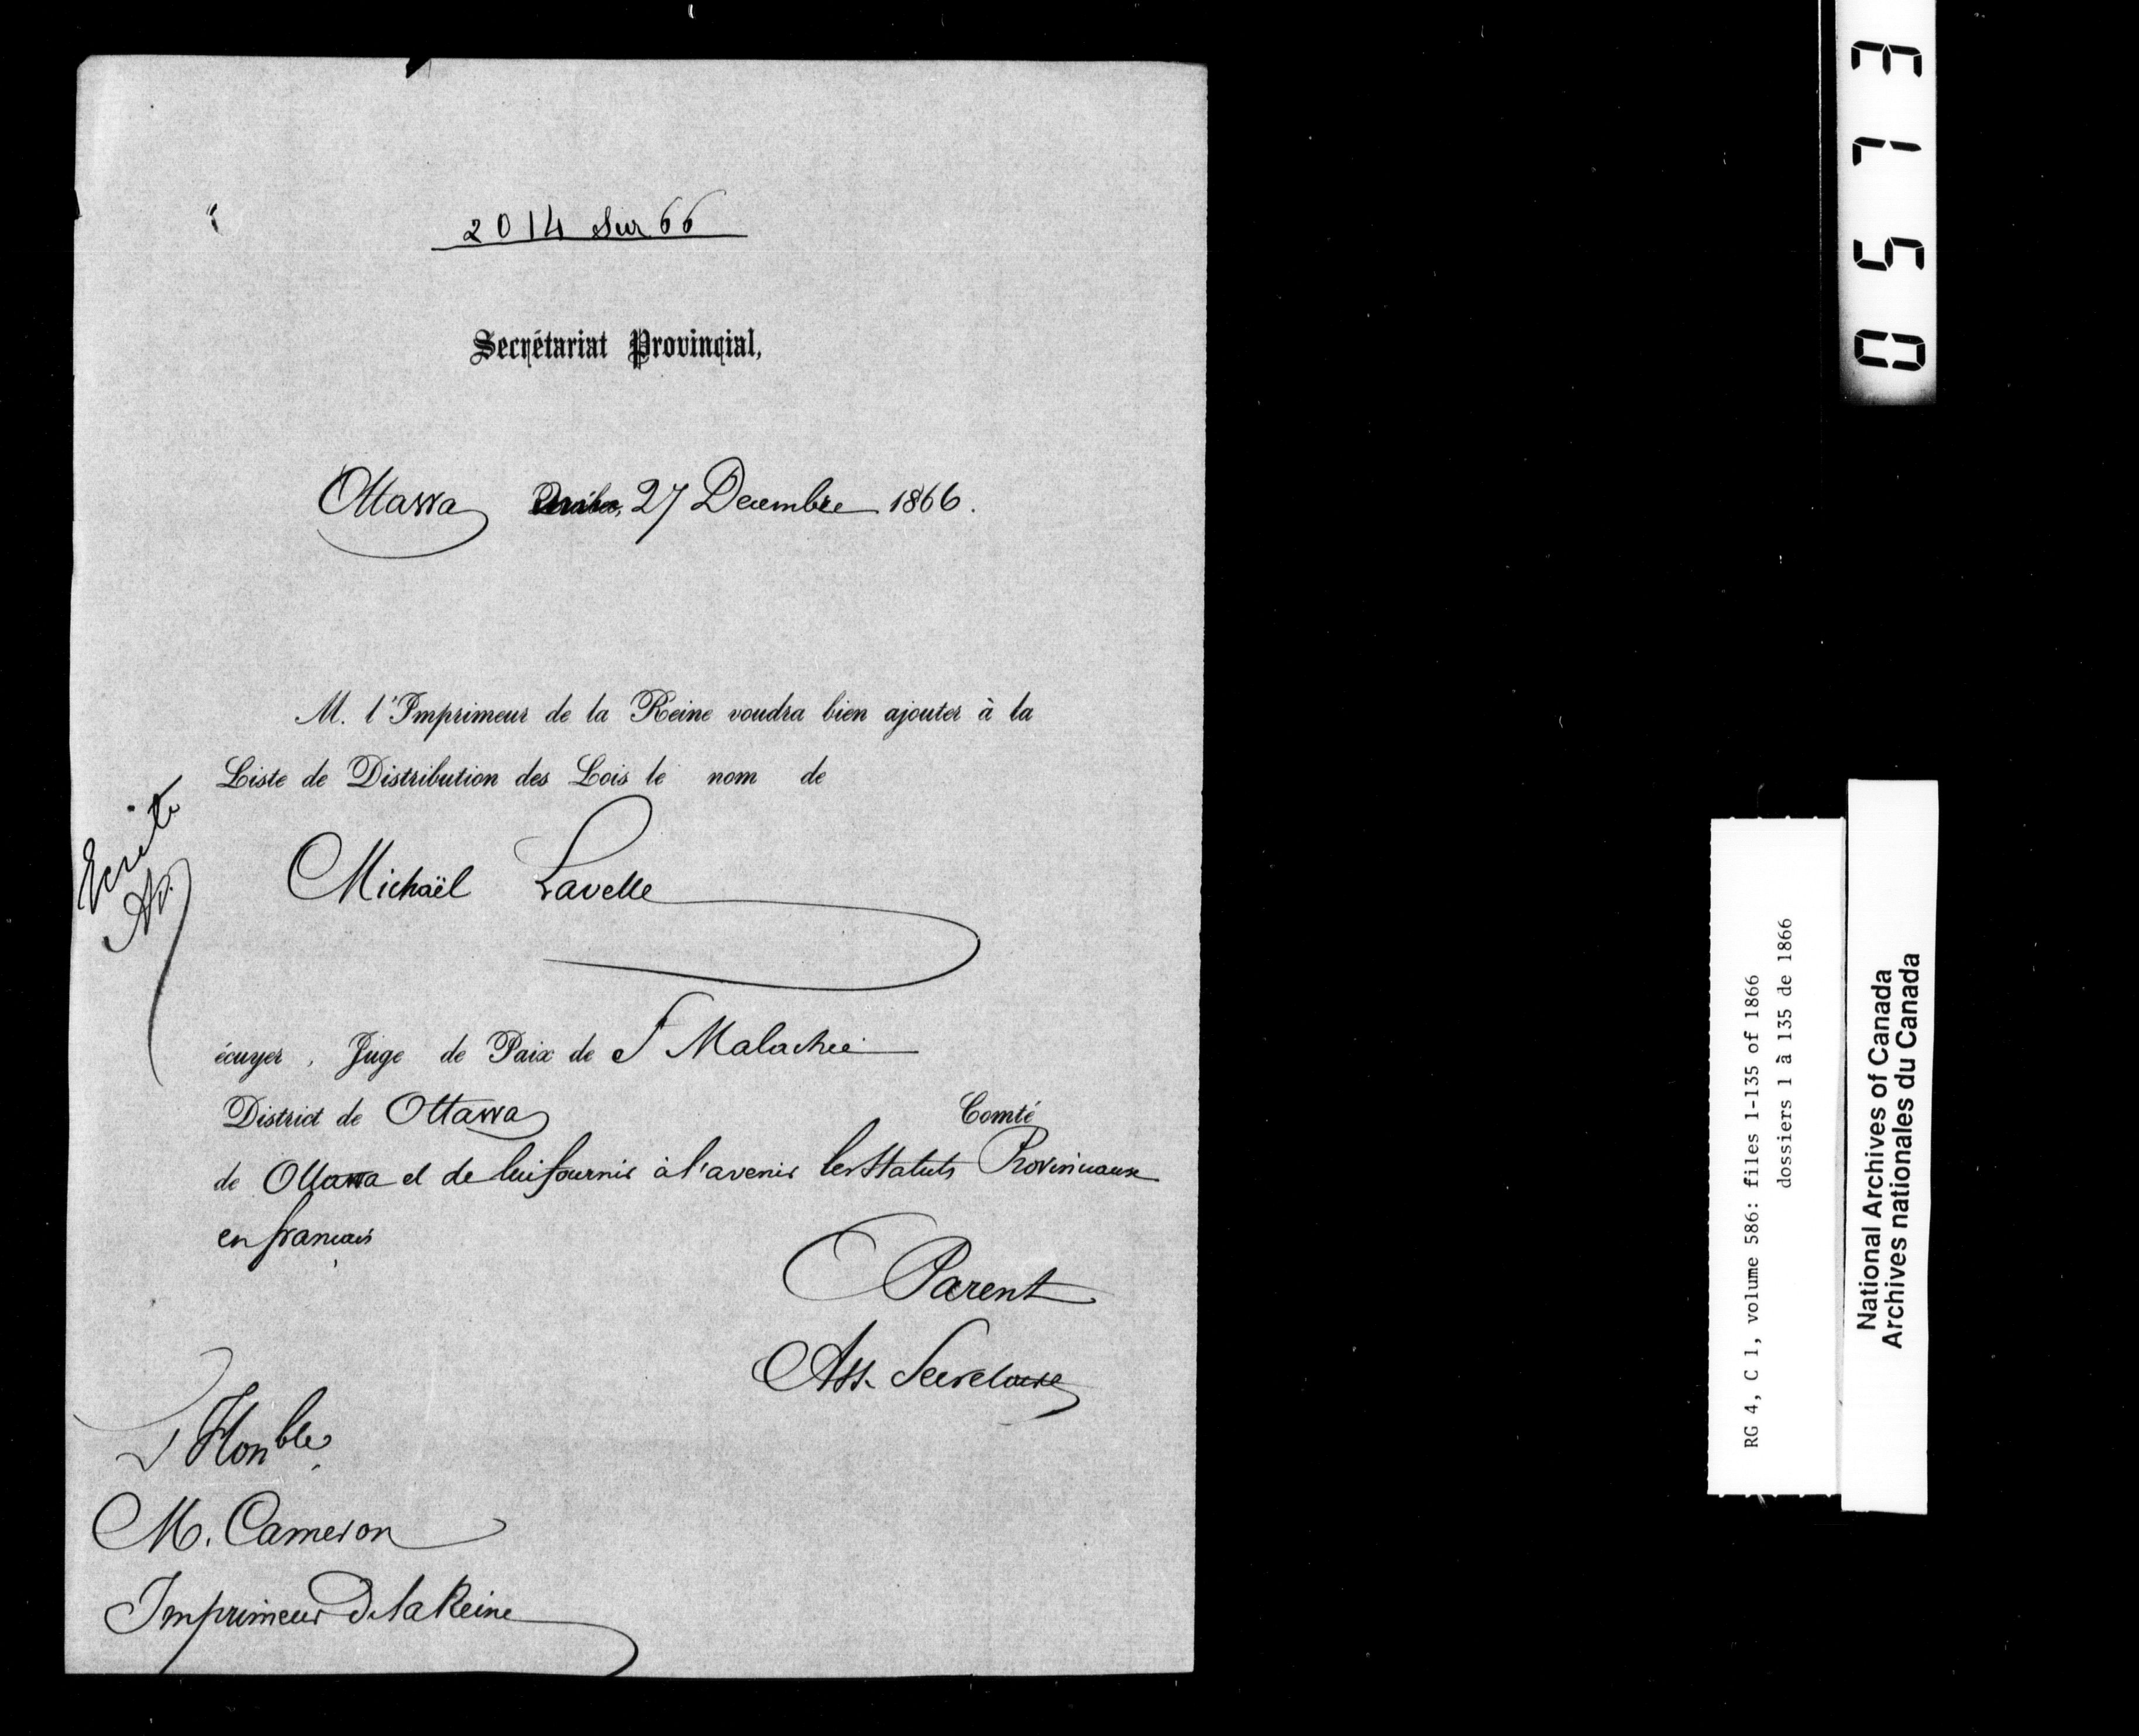 2014 Sur 66
Secrétariat Provincial,
Ottawa 27 Decembre 1866.
M. l'Imprimeur de la Reine voudra bien ajouter à la
Liste de Distribution des Lois le nom de
Michaël Lavelle
Ecrite
écuyer, Juge de Paix de St Malachie
District de Ottawa Comté
de Ottawa et de lui fournir à l'avenir les Statuts Provinciaux
en français
E Parent
Ass. Secretaire
L'Honble
M. Cameron
Imprimeur De la Reine
0513
RG 4, C 1, volume 586: files 1-135 of 1866
dossiers 1 à 135 de 1866
National Archives of Canada
Archives nationales du Canada